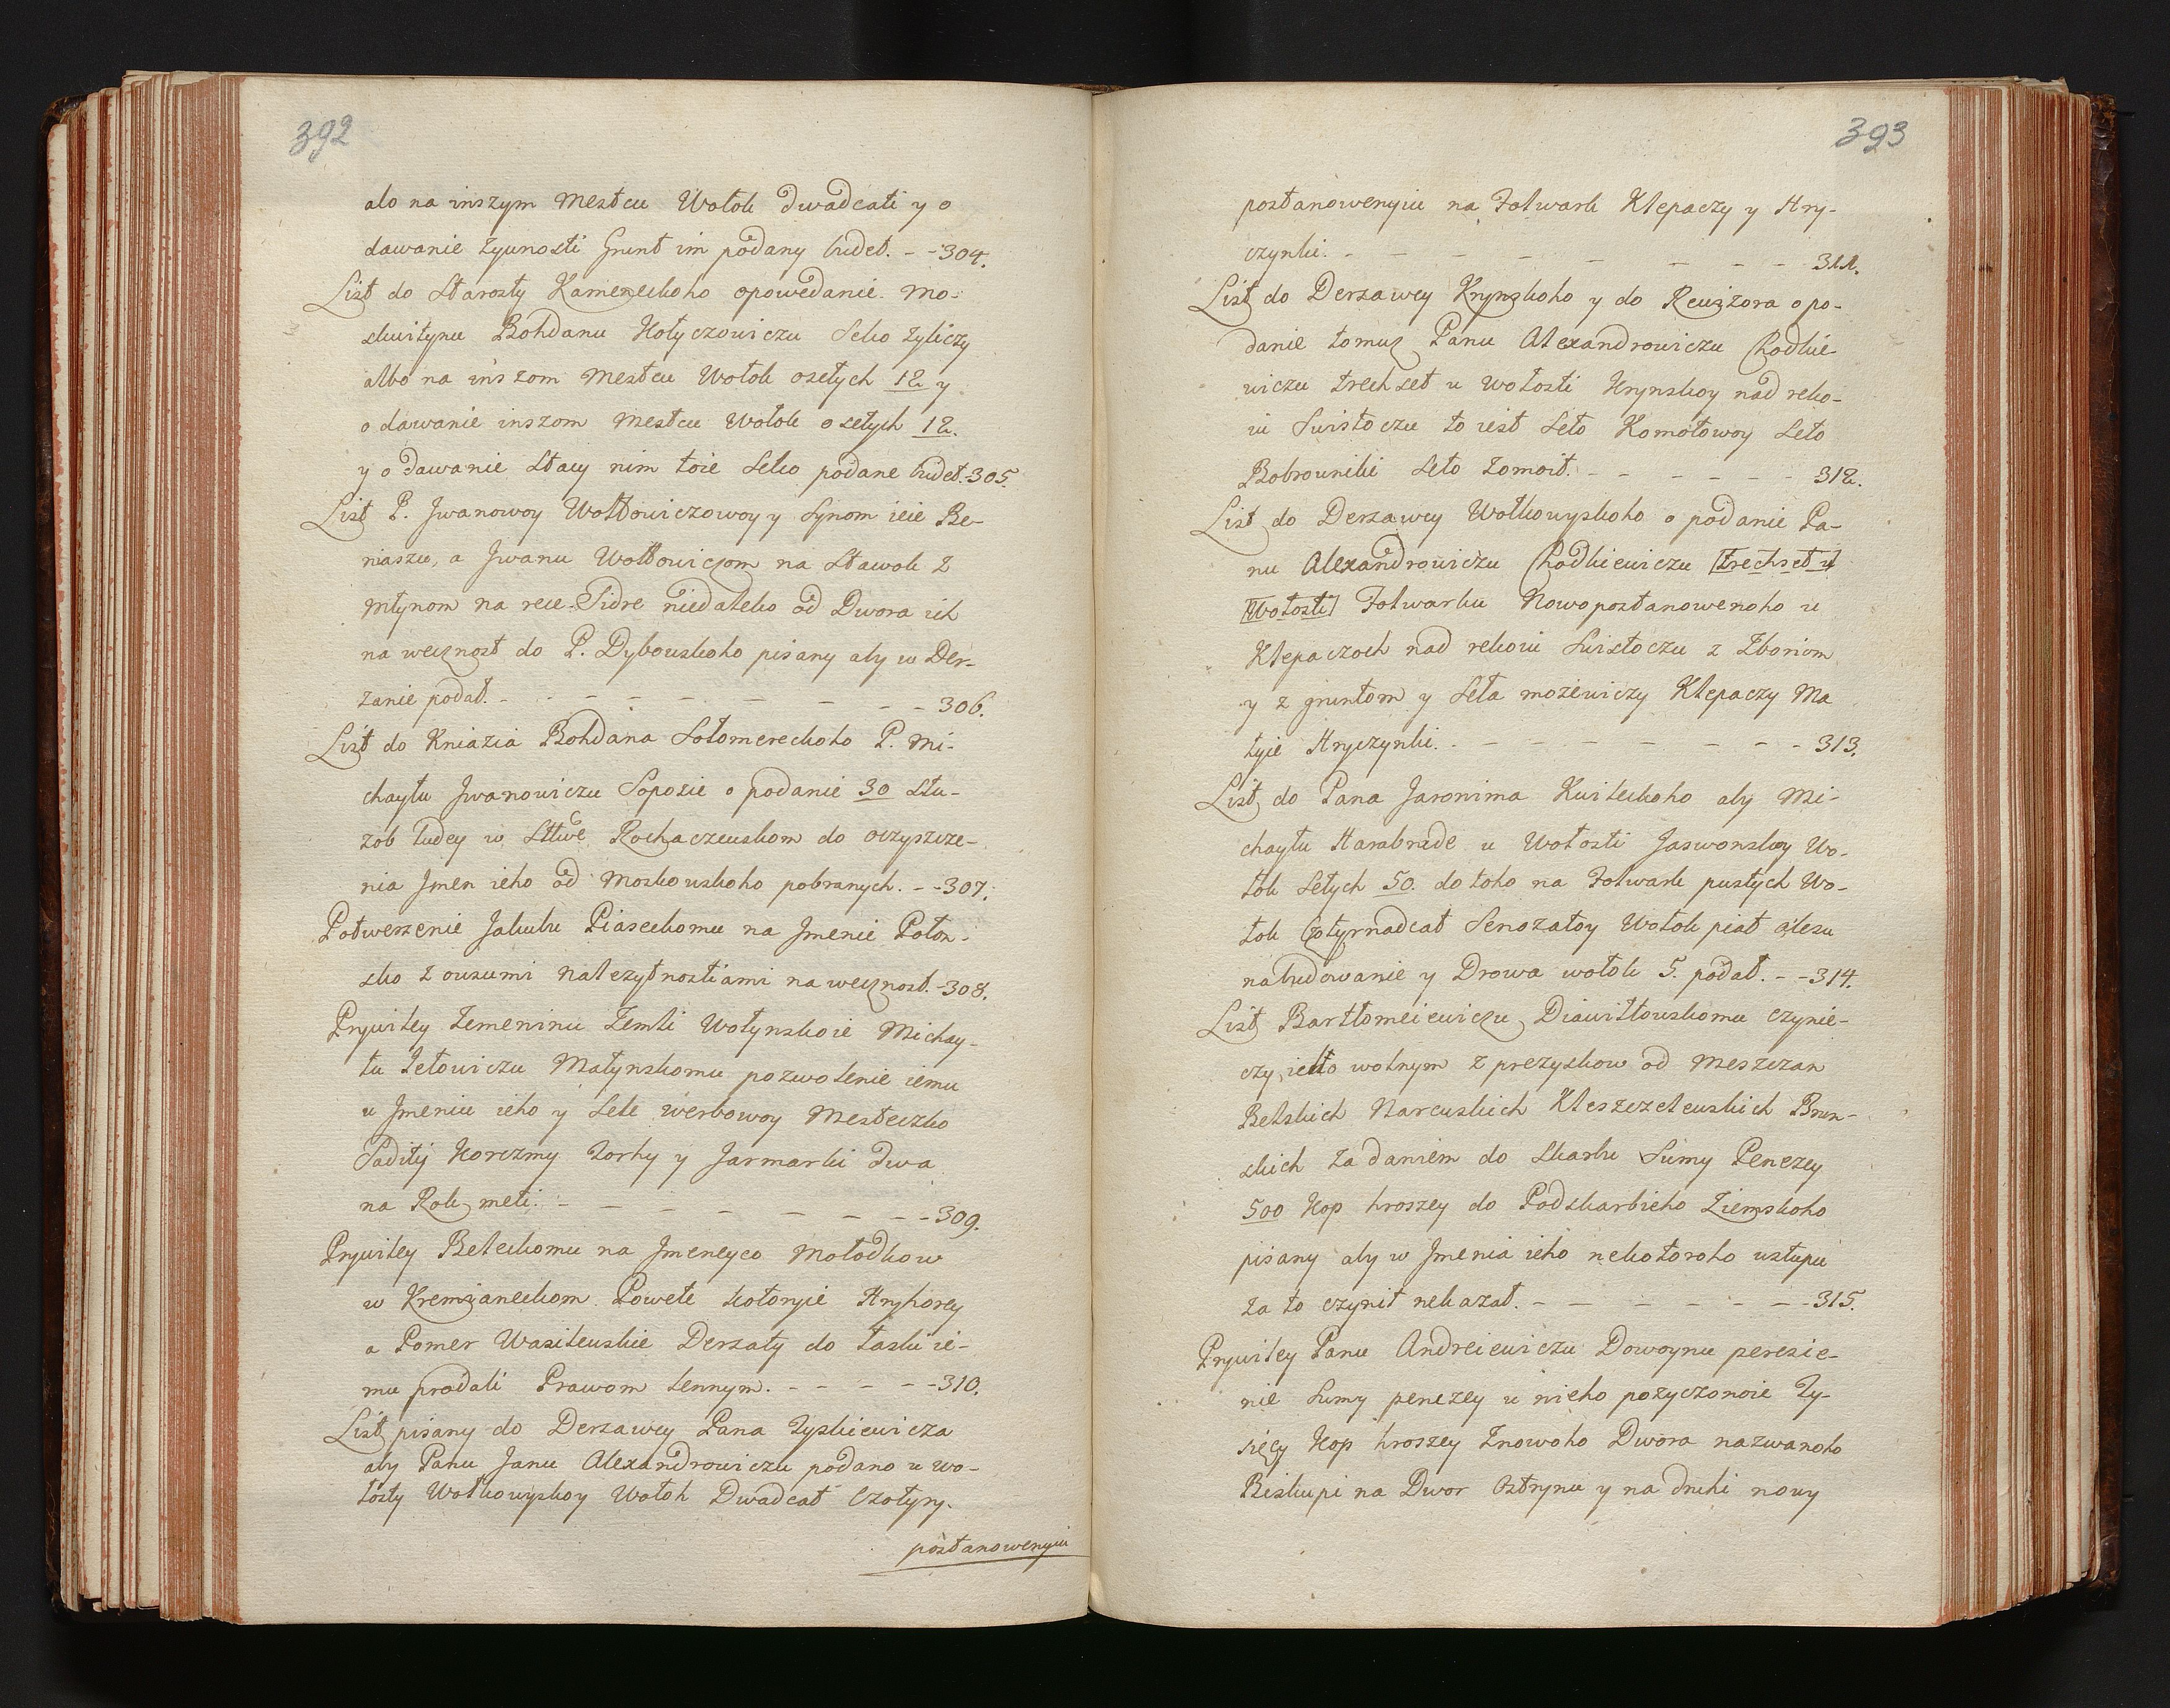 392
alo na inszym Mestcu Wołok dwadcati y o
dawanie żywnosti Grunt im podany budet. - - 304.
List do Starosty Kameneckoho opowedanie Mo-
skwitynu Bohdanu Hołyczowiczu Seło żyliczy
albo na inszom Mestcu Wołok osełych 12 y
o dawanie inszom Mestcu Wołok osełych 12.
y o dawanie Stacy nim toie Seło podane budet. - 305.
List P. Jwanowoy Wołłowiczowoy y Synom ieie Be-
niaszu, a Jwanu Wołłowiczom na Stawok z
Młynom na rece Sidre niedaleko od Dwora ich
na wecznost do P. Dybowskoho pisany aby w Der-
żanie podał. - - - - - - - - 306.
List do Kniazia Bohdana Sołomereckoho P. Mi-
chayłu Jwanowiczu Sopozie o podanie 30 Słu-
żob ludey w Sttwe Rochaczewskom do oczyszcze-
nia Jmen ieho od Moskowskoho pobranych. - - 307.
Potwerżenie Jakubu Piaseckomu na Jmenie Połon-
sko z owsumi należytnostiami na wecznost. - 308.
Prywiley Zemeninu Zemli Wołynskoie Michay-
łu Jełowiczu Małynskomu pozwolenie iemu
u Jmeniu ieho y Sele werbowoy Mesteczko
Saditij Korczmy Torhy y Jarmarki dwa
na Rok meti. - - - - - - - - 309.
Prywiley Beleckomu na Jmeneyco Mołodkow
w Kremianeckom Powete kotoryie Hryhorey
a Pomer Wasilewskie Derżały do łaski ie-
mu prodali Prawom lennym. - - - - - 310.
List pisany do Derżawcy Pana Tyszkiewicza
aby Panu Janu Alexandrowiczu podano u wo-
łosty Wołkowyskoy Wołok Dwadcat Czotyry.
postanowenyiu
393
postanowenyiu na Folwark Klepaczy y Hry-
czynki. - - - - - - - - 311.
List do Derżawcy Krynskoho y do Rewizora o po-
danie tomuz Panu Alexandrowiczu Chodkie-
wiczu trechset u wołosti Krynskoy nad reko-
iu Swisłoczu to iest Seło Komotowoy Seło
Bobrowniki Seło Zomoit. - - - - - - 312.
List do Derżawcy Wołkowyskoho o podanie Pa-
nu Alexandrowiczu Chodkiewiczu trechset u
Wołosti Folwarku Nowopostanowenoho u
Klepaczoch nad rekoiu Swisłoczu z Zboriom
y z gruntom y Seła możeiwiczy Klepaczy Ma
łyie Hryczynki. - - - - - - - - 313.
List do Pana Jaronima Kwileckoho aby Mi-
chayłu Haraburde u Wołosti Jaswonskoy Wo-
łok Sełych 50. do toho na Folwark pustych Wo-
łok Czotyrnadcat Senożatoy Wołok piat a lesu
na budowanie y Drowa wołok 5. podał. - - 314.
List Bartłomeiewiczu Diawiłtowskomu czynie-
czy ieho wolnym z prezyskow od Meszczan
Belskich Narewskich Kleszczelewskich Bran-
skich za daniem do Skarbu Sumy Penezey
500 Kop hroszey do Podskarbieho Ziemskoho
pisany aby w Jmenia ieho nekotoroho ustupu
za to czynit nekazał. - - - - - - - 315.
Prywiley Panu Andreiewiczu Dowoynu perezie-
nie Sumy penezey u nieho pozyczonoie Ty-
sięcy Kop hroszey Znowoho Dwora nazwanoho
Biskupi na Dwor Ostrynu y na druhi nowy